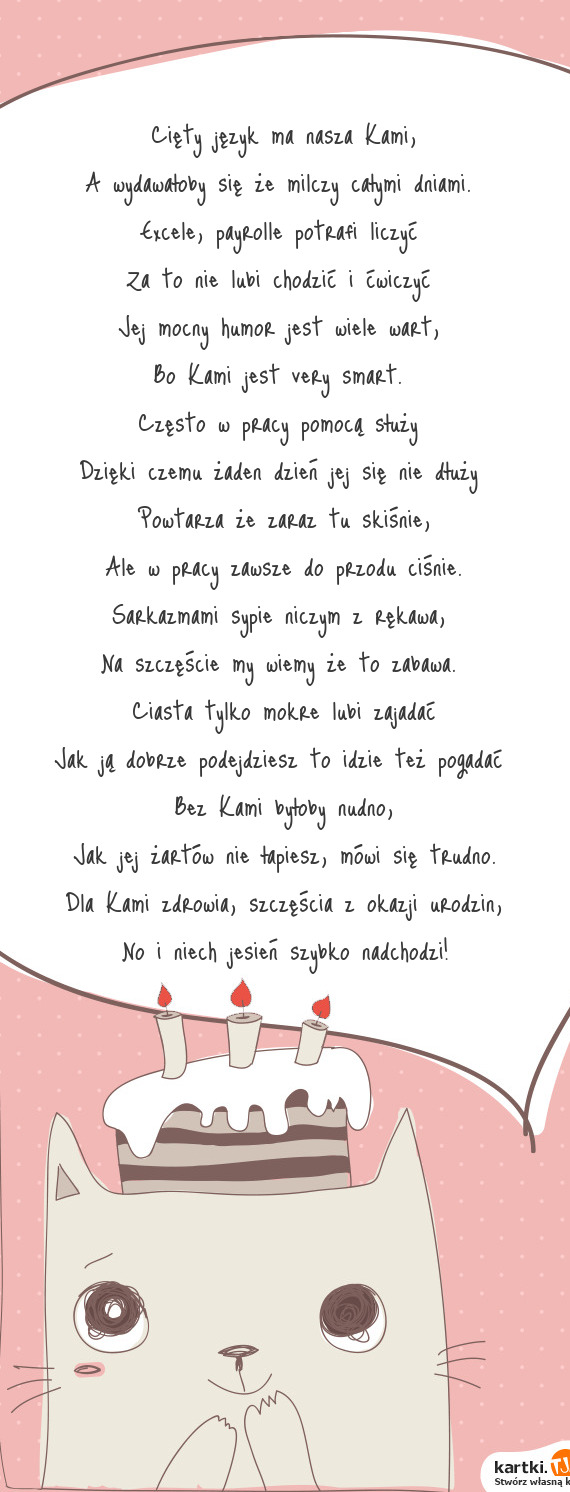 Cięty język ma nasza Kami,
A wydawałoby się że milczy całymi dniami.
Excele, payrolle potrafi liczyć
Za to nie lubi chodzić i ćwiczyć
Jej mocny humor jest wiele wart,
Bo Kami jest very smart.
Często w pracy pomocą służy
Dzięki czemu żaden dzień jej się nie dłuży
Powtarza że zaraz tu skiśnie,
Ale w pracy zawsze do przodu ciśnie.
Sarkazmami sypie niczym z rękawa,
Na szczęście my wiemy że to zabawa.
Ciasta tylko mokre lubi zajadać
Jak ją dobrze podejdziesz to idzie też pogadać
Bez Kami byłoby nudno,
Jak jej żartów nie łapiesz, mówi się trudno.
Dla Kami zdrowia, szczęścia z okazji urodzin,
No i niech jesień szybko nadchodzi!
kartki.TJ
Stwórz własną k